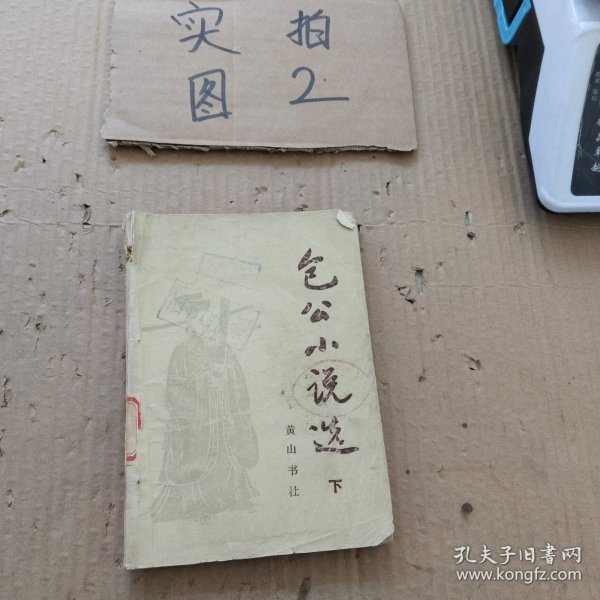 实拍
图2
包公小说选
下
黄山书社
孔夫子旧书网
www.kongfz.com